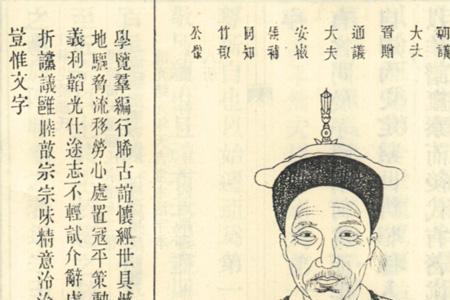 朝議
大夫
晉贈
通議
大夫
安徽
候補
同知
竹
公像
學覽羣編行晞古誼懷經世具
地驪脅流移勞心處置冠平策勳
義利韜光仕途志不輕試介辭
折讞議睦敬宗宗味精意洽
豈惟文字